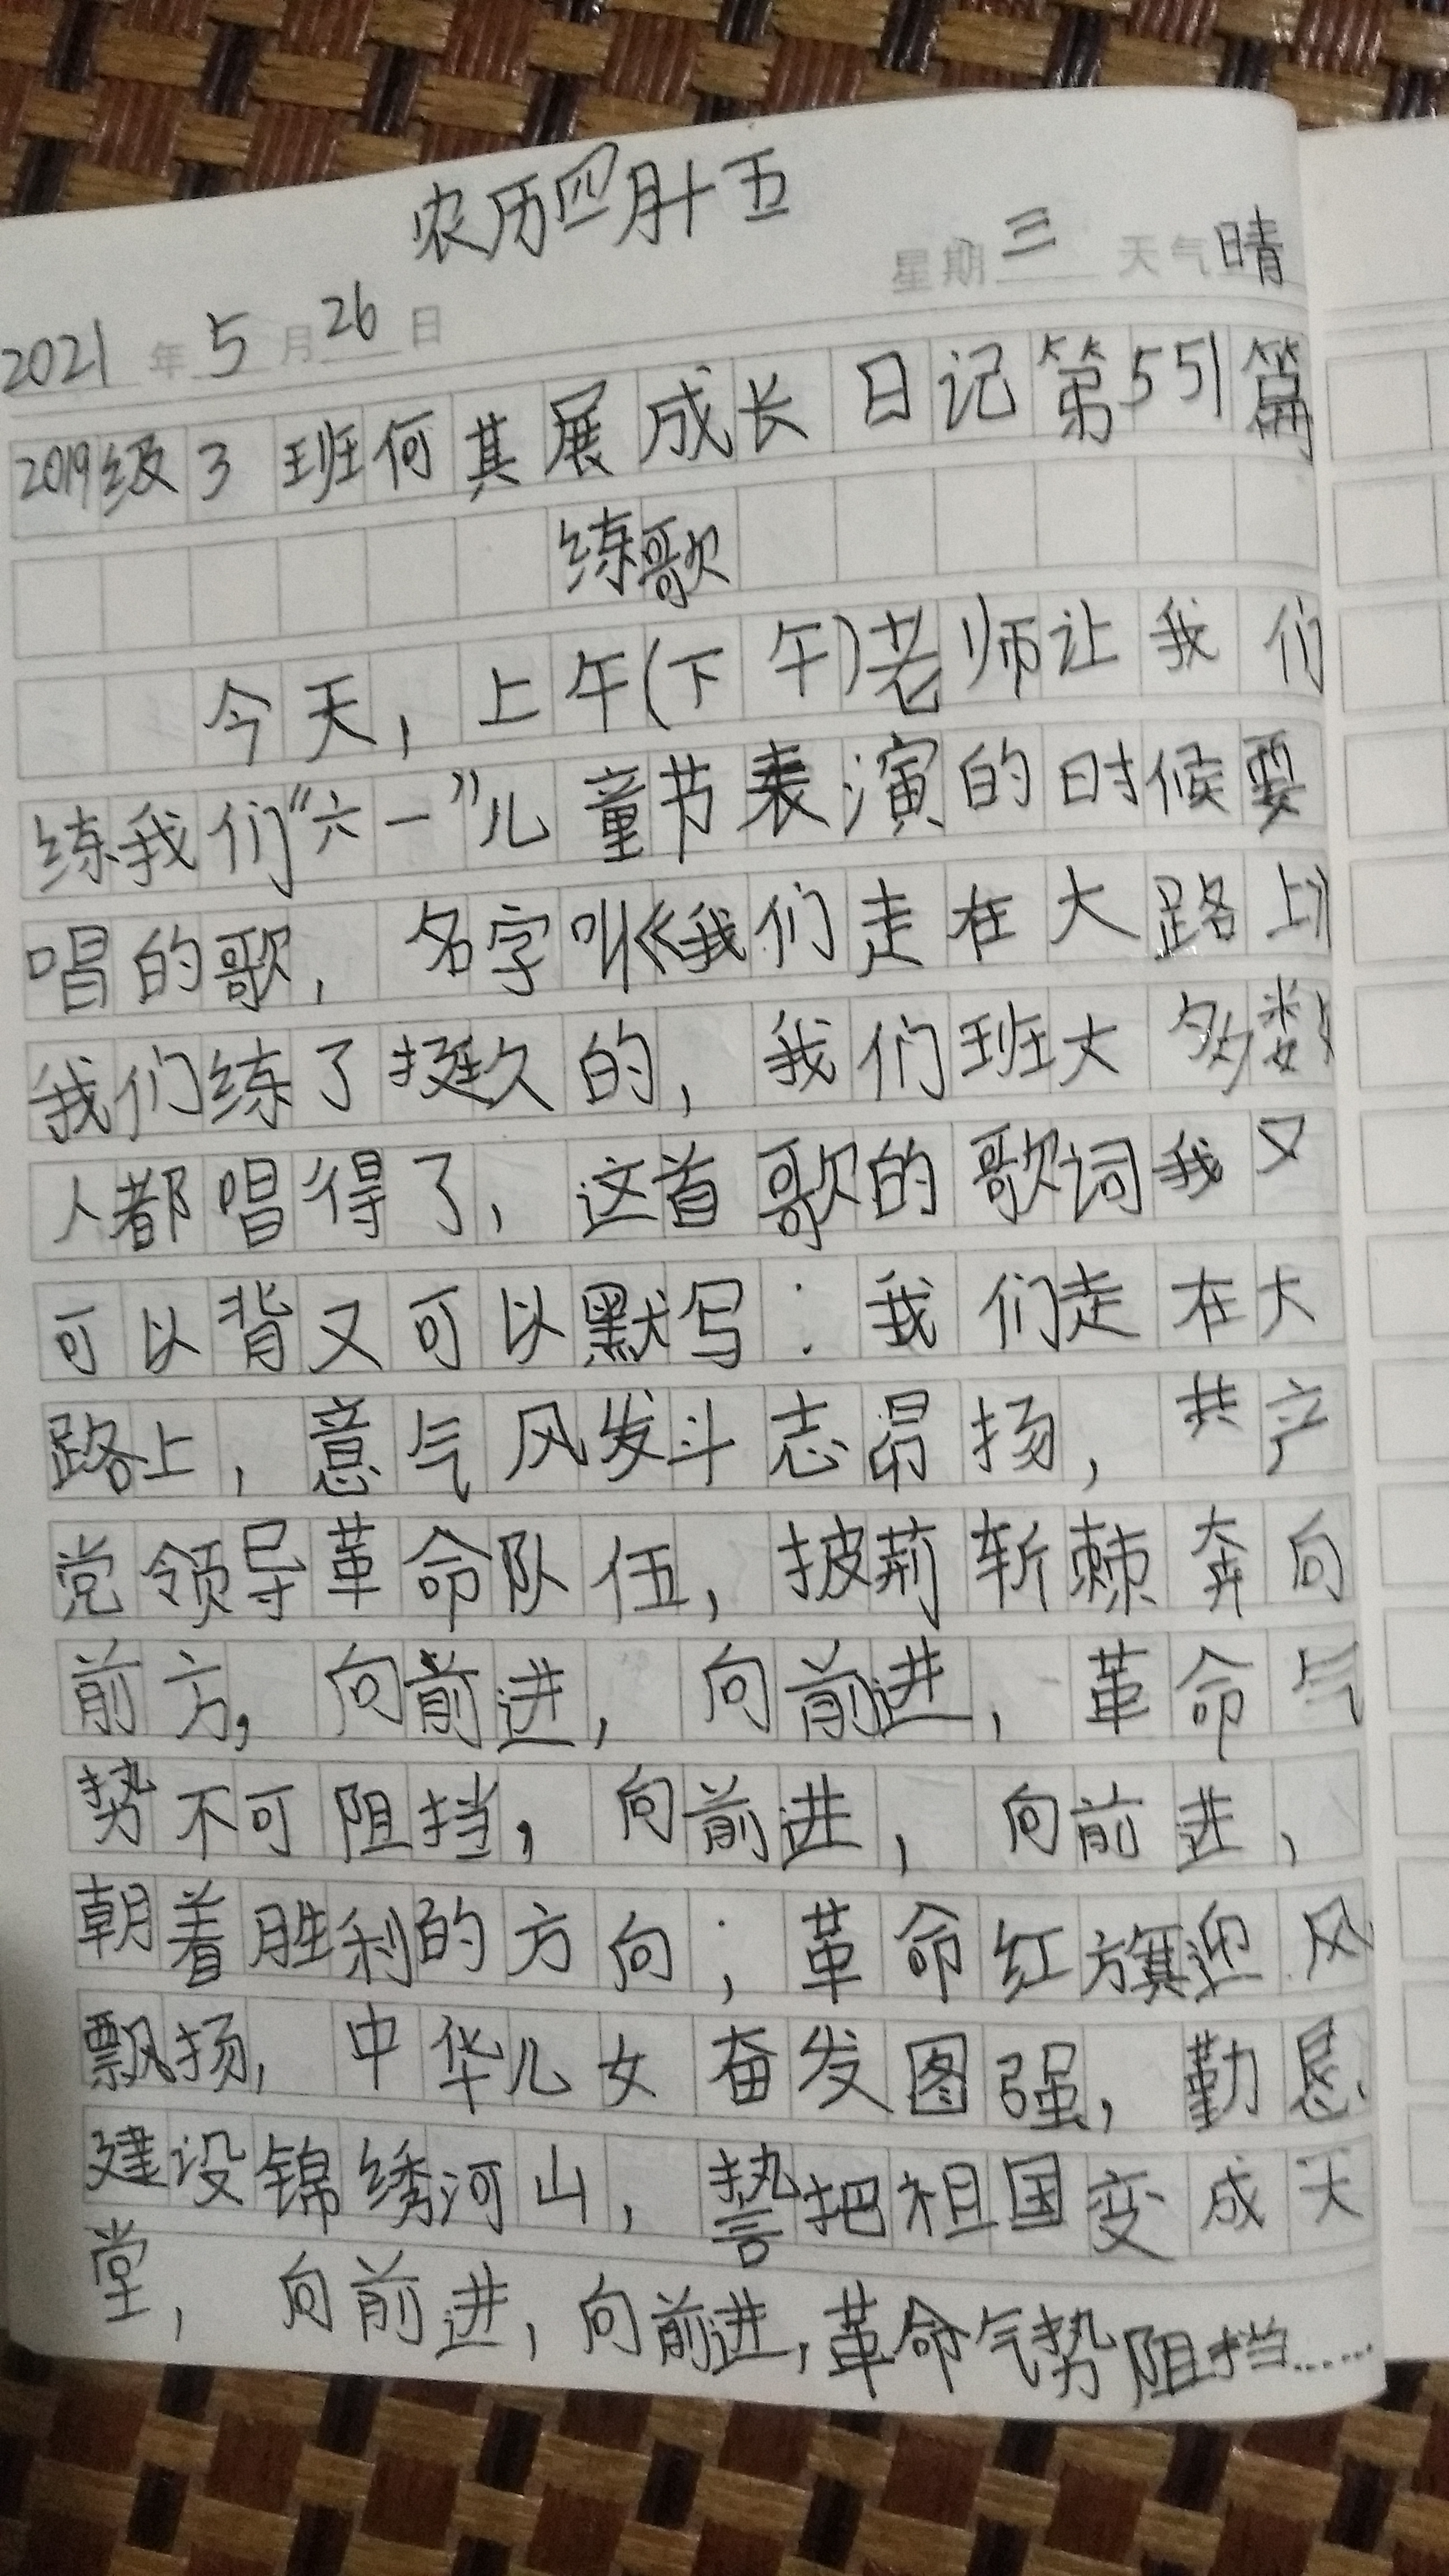 农历四月十五
星期三 天气晴
2021年5月26日
2019级3班何其展成长日记第551篇
练歌
今天，上午(下午)老师让我们
练我们“六一”儿童节表演的时候要
唱的歌，名字叫《我们走在大路上》
我们练了挺久的，我们班大多数
人都唱得了，这首歌的歌词我又
可以背又可以默写：我们走在大
路上，意气风发斗志昂扬，共产
党领导革命队伍，披荆斩棘奔向
前方，向前进，向前进，革命气
势不可阻挡，向前进，向前进，
朝着胜利的方向；革命红旗迎风
飘扬，中华儿女奋发图强，勤恳
建设锦绣河山，誓把祖国变成天
堂，向前进，向前进，革命气势阻挡……